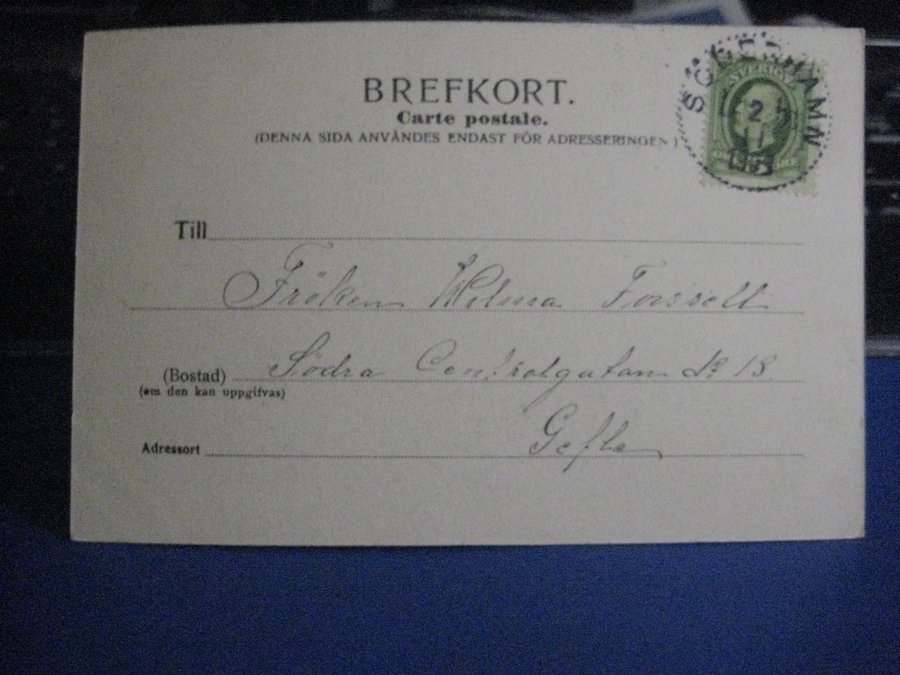 BREFKORT.
Carte postale.
(DENNA SIDA ANVÄNDES ENDAST FÖR ADRESSERINGEN)
SÖDERHAMN
SVERIGE
2
11
Till
Fröken Wilma Forssell
(Bostad) Södra Centralgatan No 18.
(om den kan uppgifvas)
Adressort Gefle